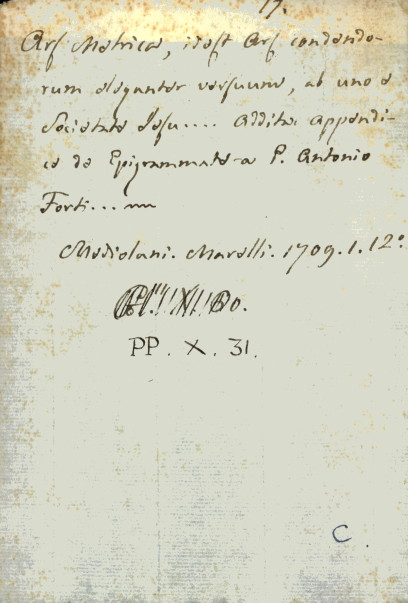 17.
Ars Metrica, idest Ars condendo-
rum eleganter versuum, ab uno e
Societate Jesu.... Addita appendi-
ce de Epigrammate a P. Antonio
Forti...
Mediolani. Marelli. 1709. 1. 12º
PP. X. 31.
C.